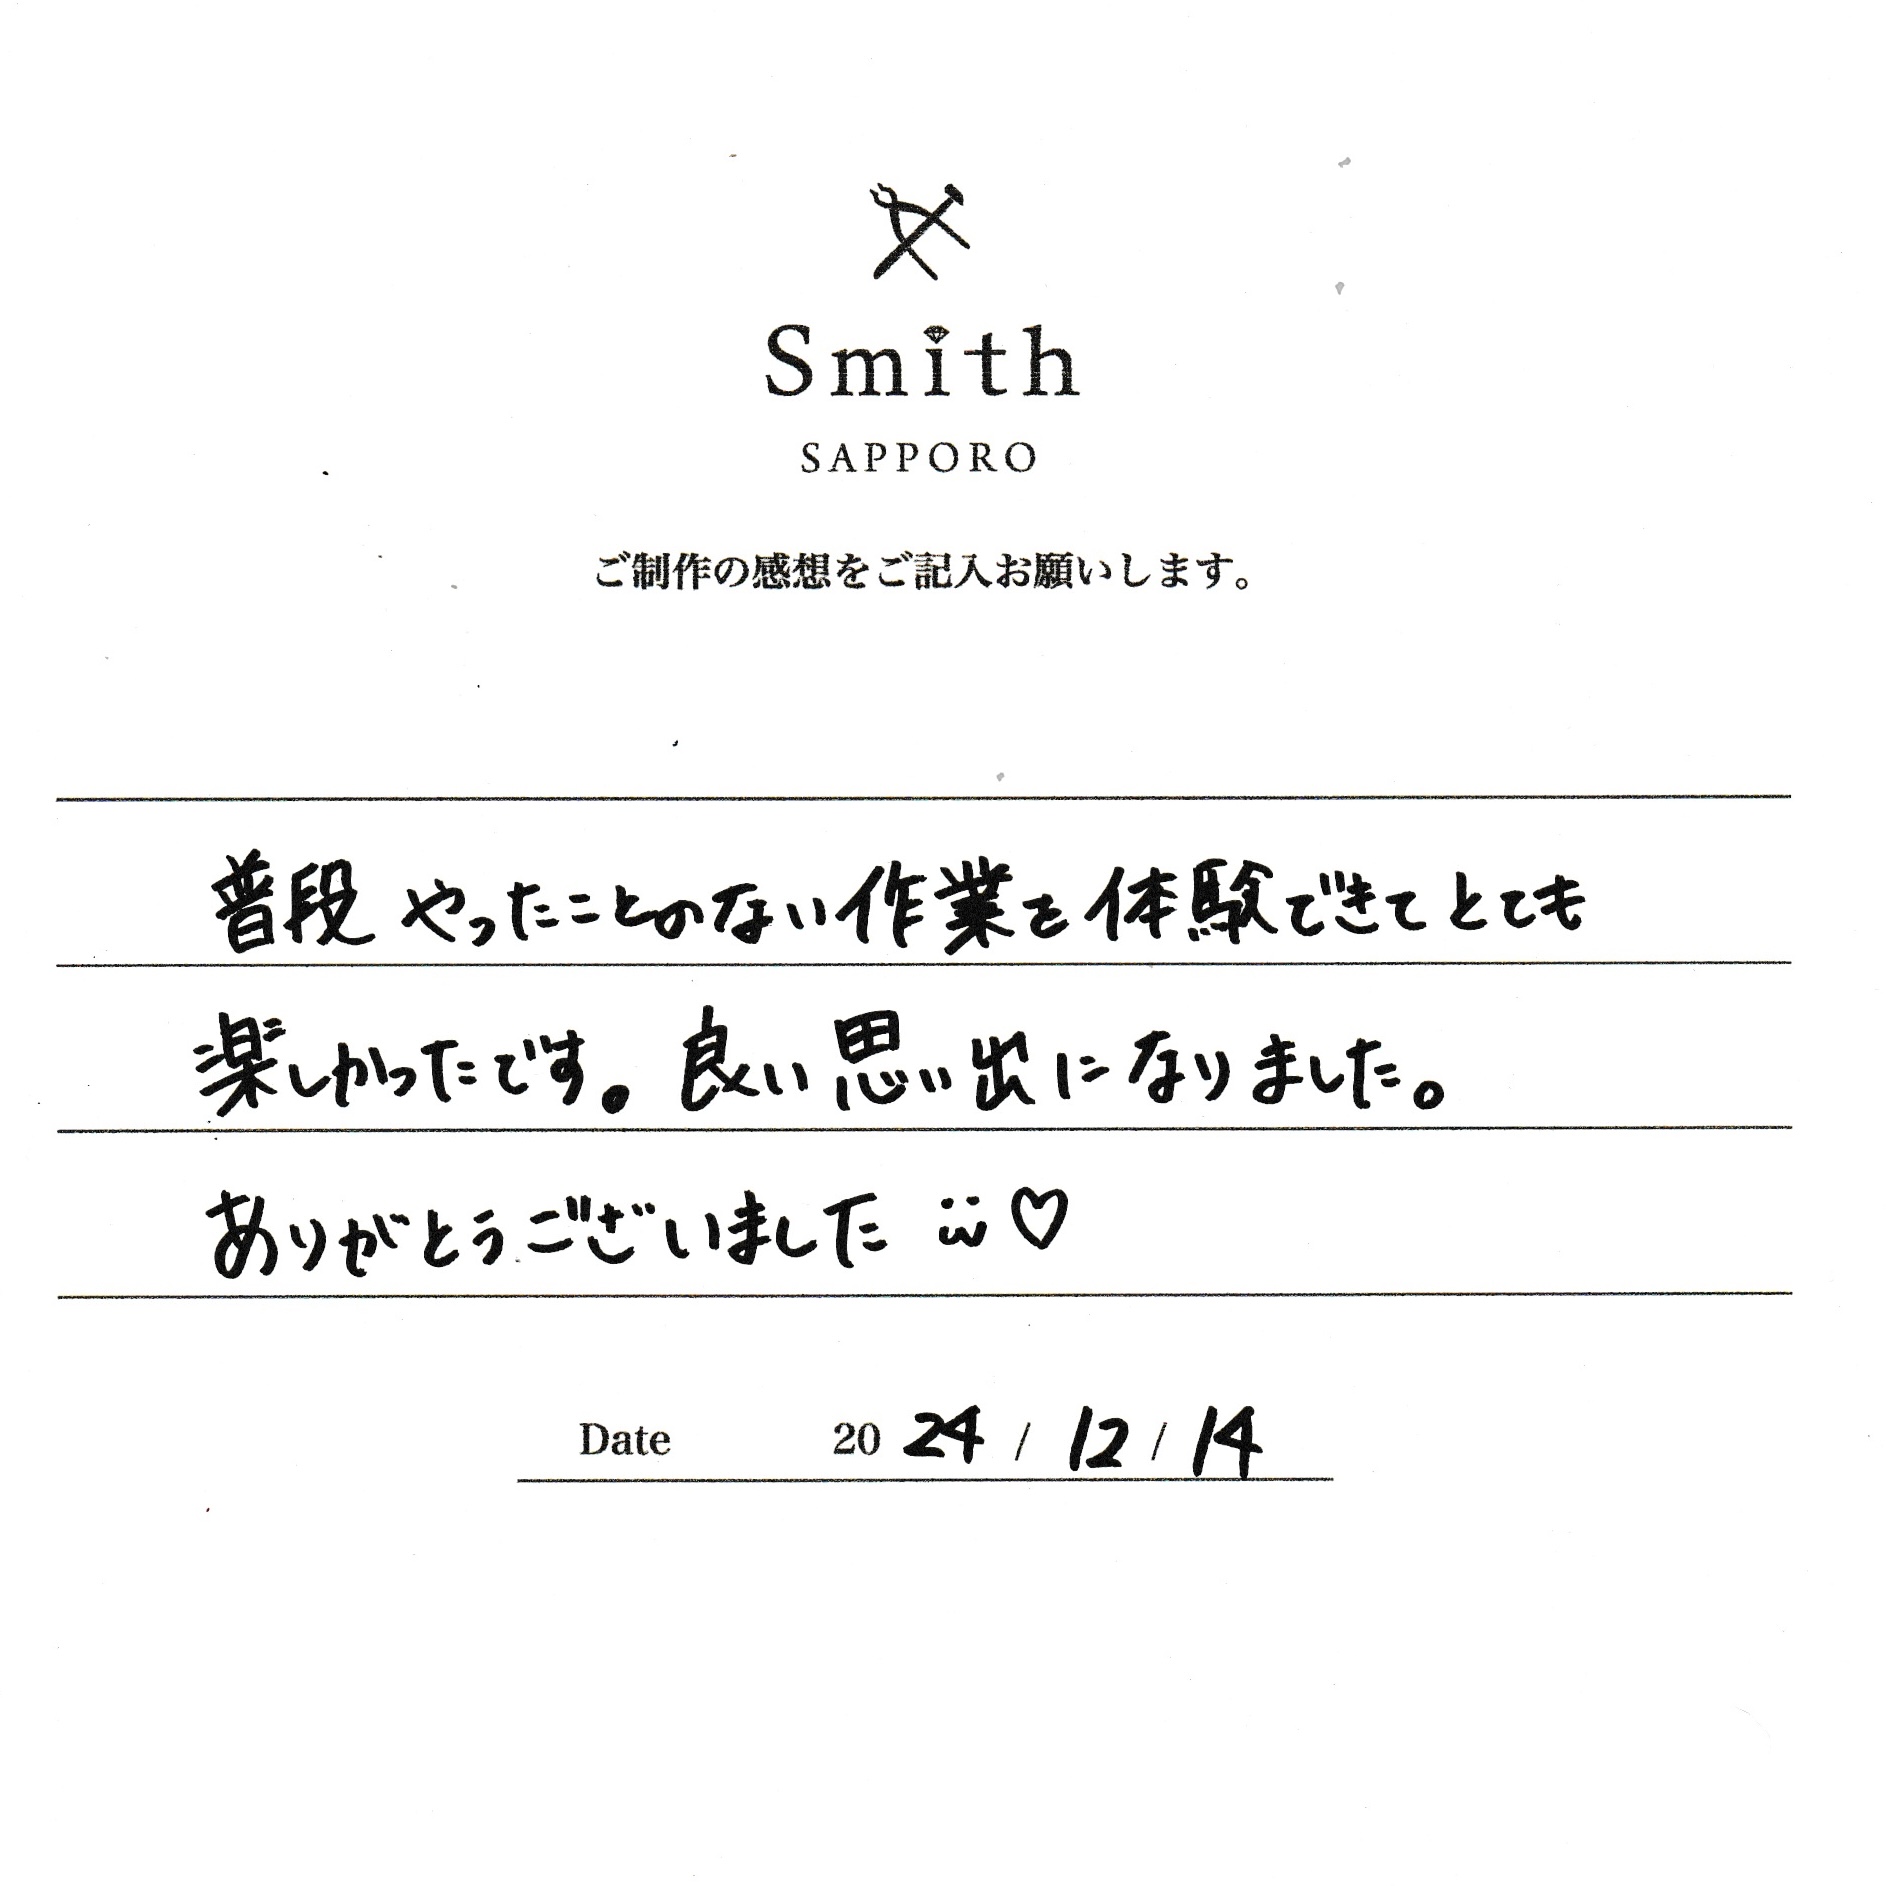 Smith
SAPPORO
ご制作の感想をご記入お願いします。
普段やったことのない作業を体験できてとても
楽しかったです。良い思い出になりました。
ありがとうございました ♡
Date 2024 / 12 / 14